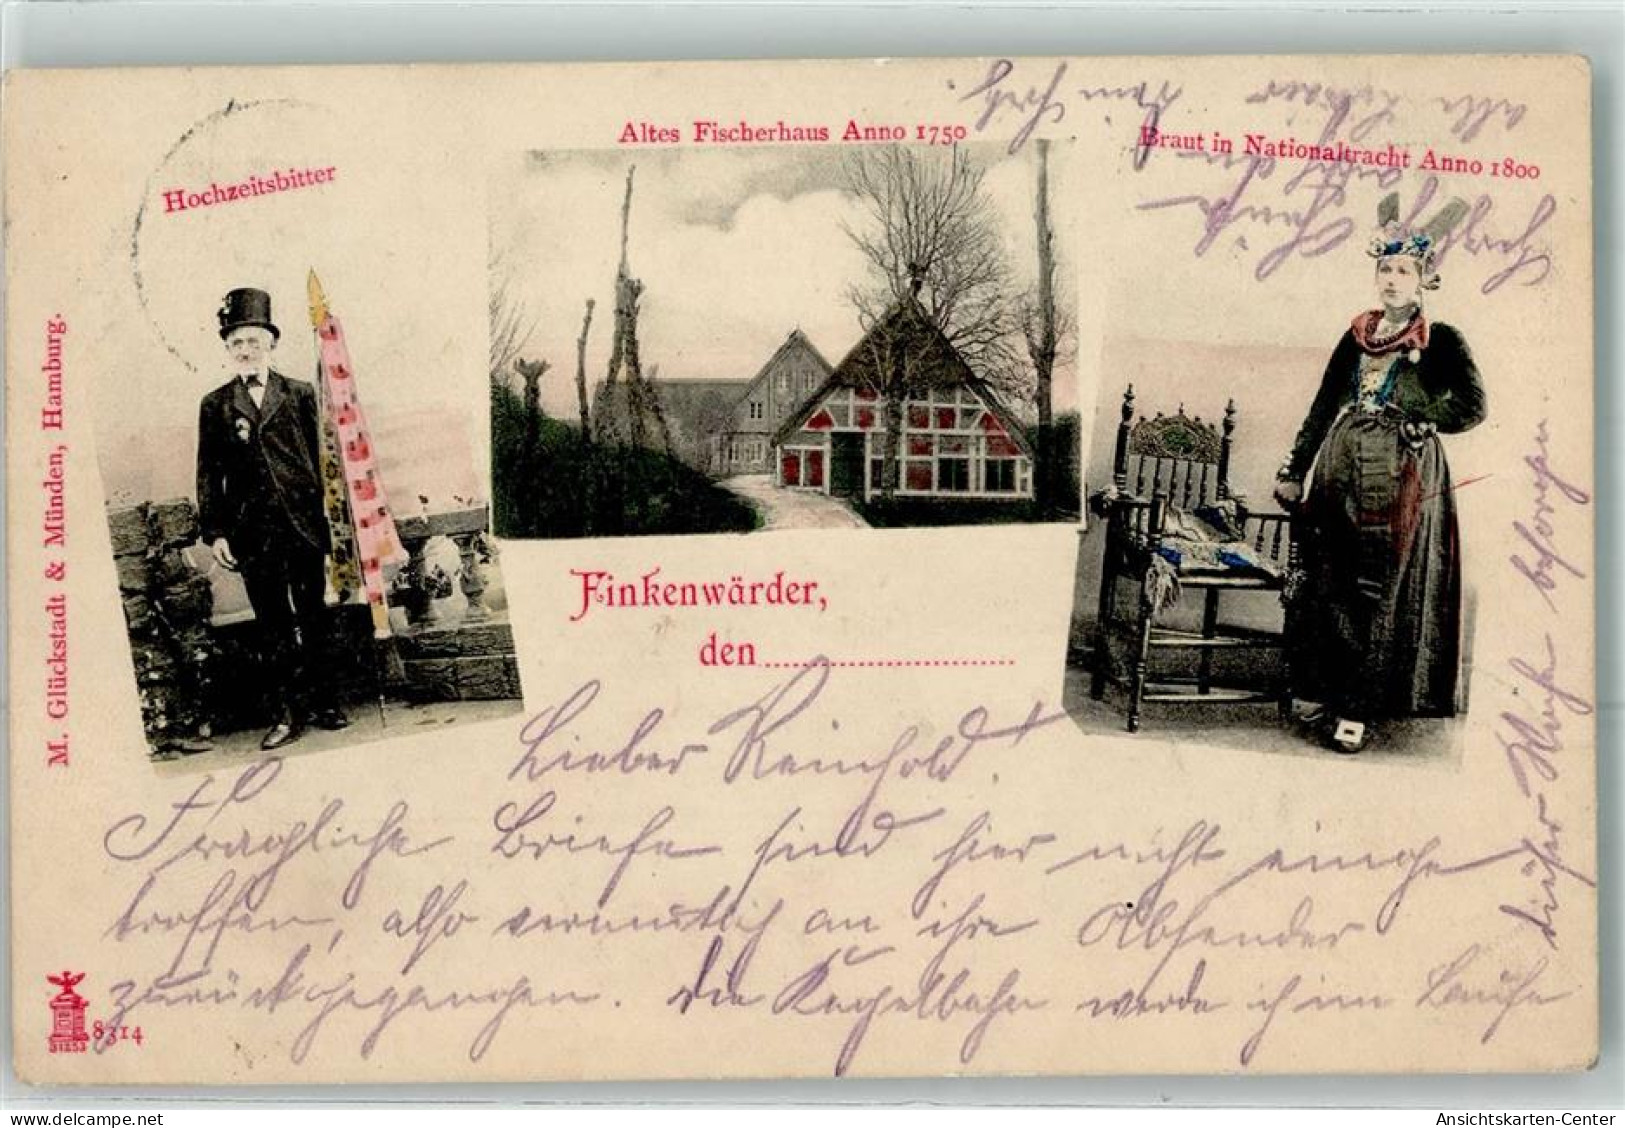 Hochzeitsbitter
Altes Fischerhaus Anno 1750
Braut in Nationaltracht Anno 1800
M. Glückstadt & Münden, Hamburg.
Finkenwärder,
den
Lieber Reinhold!
Fragliche Briefe sind hier nicht einge
troffen, also vermutlich an ihre Absender
zurückgegangen. Die Kugelbahn werde ich im Laufe
dieser Woche besorgen.
Herzl.
auch an
alle Lieder
Dein
8314
Ansichtskarten-Center